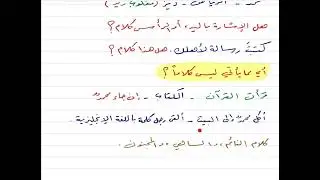 هل الإشارة باليد، أو بالرأس كلام؟
كتبتُ رسالة لأهلك. هل هذا كلام؟
أي مما يأتي ليس كلاماً؟
قرأت القرآن - الكتاب - إن جاء محمد
أكل محمد في البيت - ألقى رجل كلمة باللغة الإنجليزية.
كلام النائم، والساهي، والمجنون.